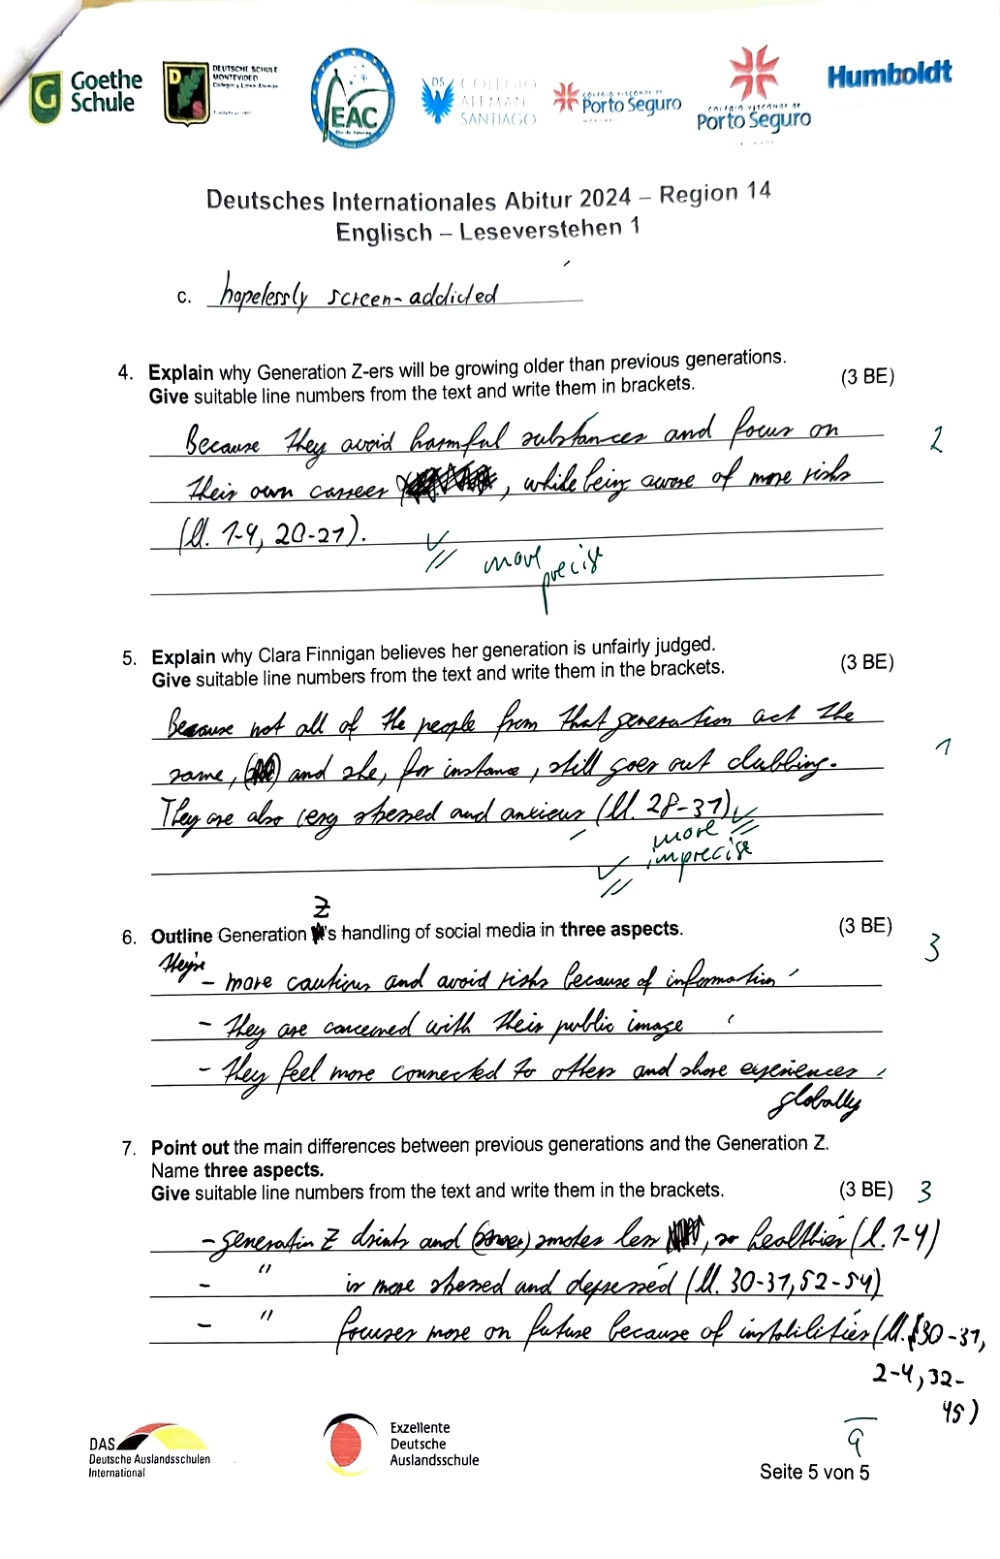 Goethe
Schule
DEUTSCHE SCHULE
MONTEVIDEO
EAC
DS COLEGIO
ALEMAN
SANTIAGO
COLÉGIO VISCONDE DE
Porto Seguro
COLÉGIO VISCONDE DE
Porto Seguro
Humboldt
Deutsches Internationales Abitur 2024 – Region 14
Englisch – Leseverstehen 1
c. hopelessly screen-addicted
4. Explain why Generation Z-ers will be growing older than previous generations.
Give suitable line numbers from the text and write them in brackets. (3 BE)
Because they avoid harmful substances and focus on
2
their own carreer, while being aware of more risks
(ll. 1-4, 20-21).
more
precise
5. Explain why Clara Finnigan believes her generation is unfairly judged.
Give suitable line numbers from the text and write them in the brackets. (3 BE)
Because not all of the people from that generation act the
same, and she, for instance, still goes out clubbing.
1
They are also very stressed and anxious (ll. 28-31)
more
imprecise
Z
6. Outline Generation 's handling of social media in three aspects. (3 BE)
3
They're
- more cautious and avoid risks because of information
- they are concerned with their public image
- they feel more connected to others and share experiences
globally
7. Point out the main differences between previous generations and the Generation Z.
Name three aspects.
Give suitable line numbers from the text and write them in the brackets. (3 BE) 3
- generation Z drinks and smokes less, so healthier (l. 1-4)
- " is more stressed and depressed (ll. 30-31, 52-54)
- " focuses more on future because of instabilities (ll. 30-31,
2-4, 32-
45)
9
DAS
Deutsche Auslandsschulen
International
Exzellente
Deutsche
Auslandsschule
Seite 5 von 5